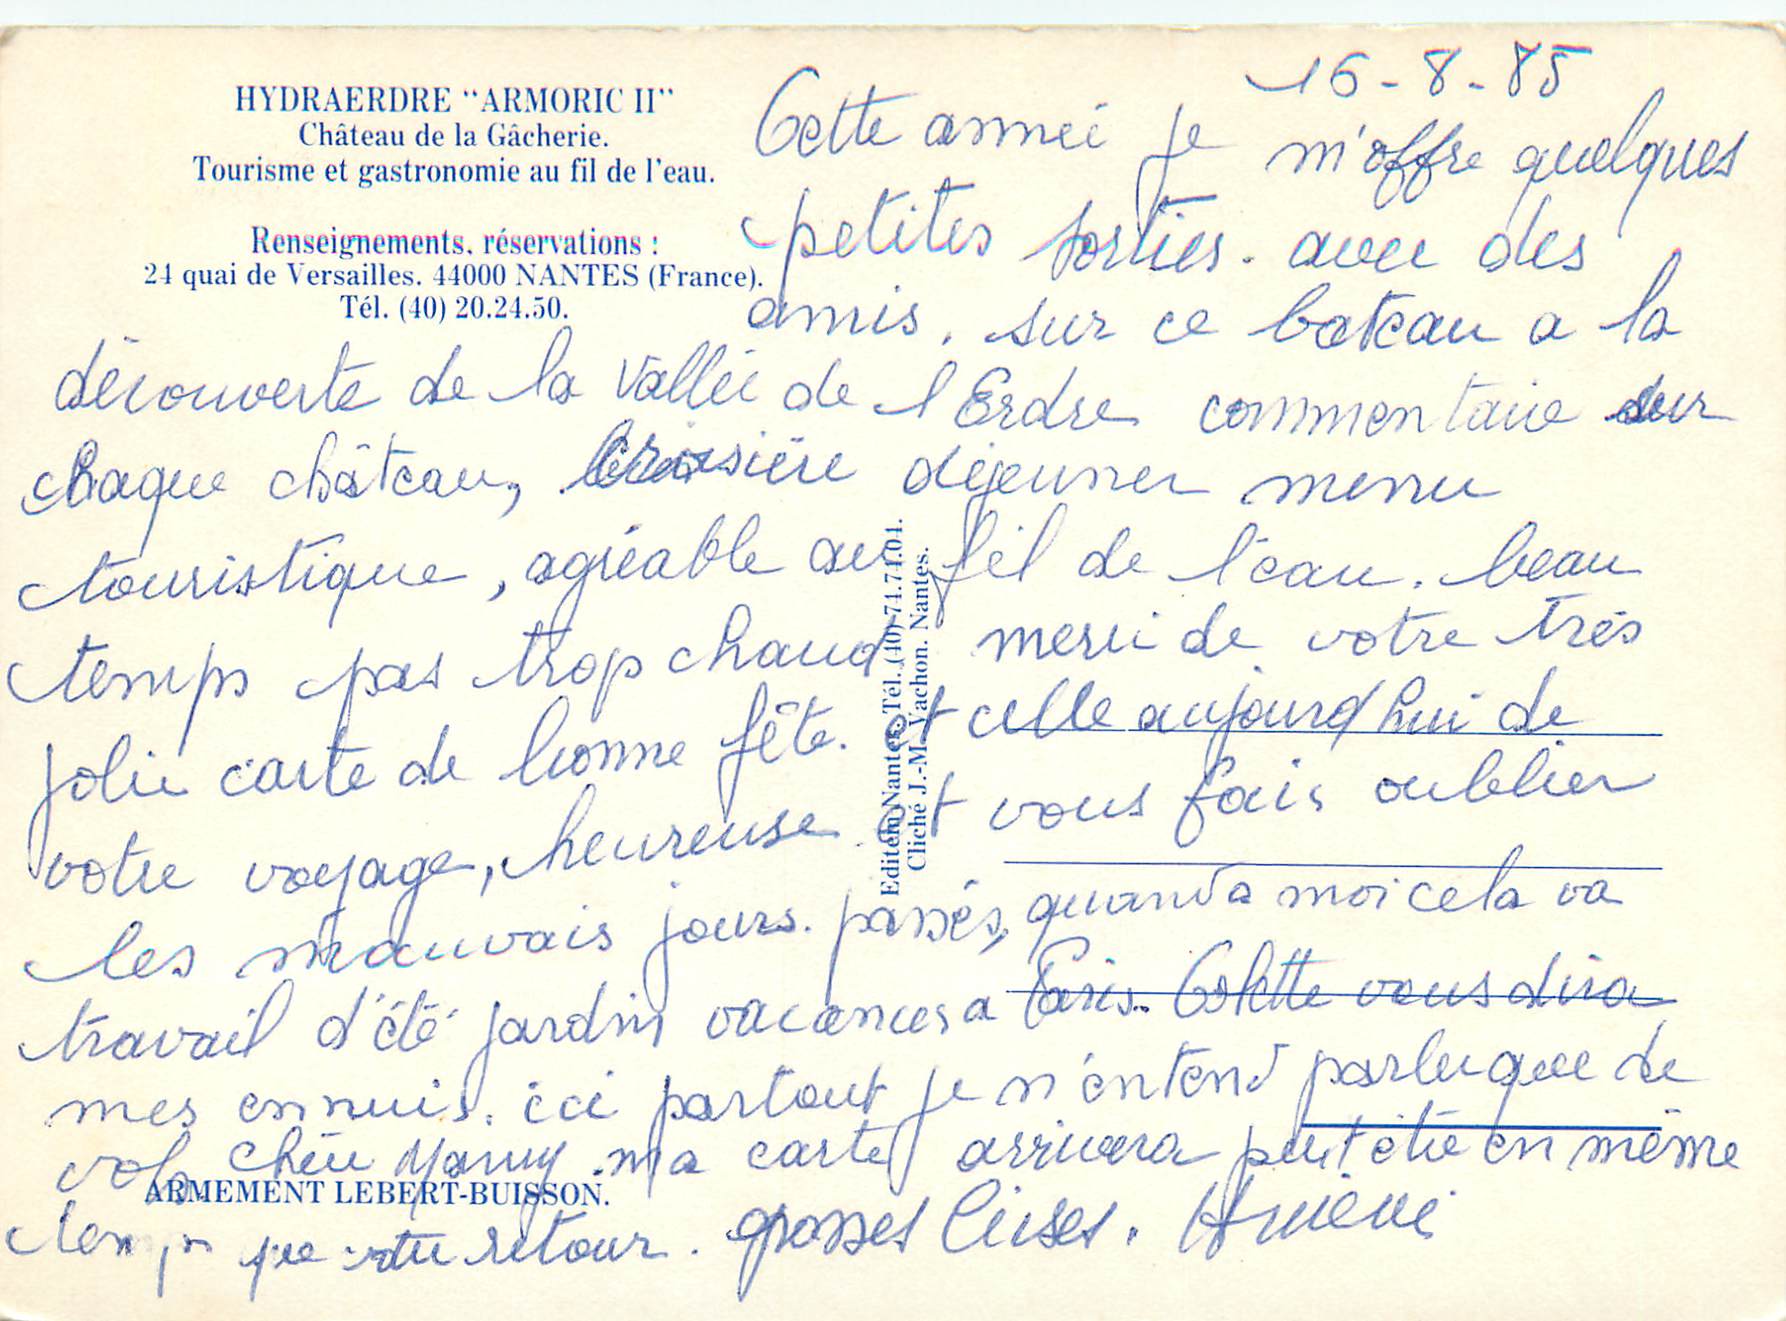 HYDRAERDRE "ARMORIC II"
Château de la Gâcherie.
Tourisme et gastronomie au fil de l'eau.
Renseignements, réservations :
24 quai de Versailles. 44000 NANTES (France).
Tél. (40) 20.24.50.
16-8-85
Cette année je m'offre quelques
petites sorties. avec des
amis. sur ce bateau a la
découverte de la Vallée de l'Erdre commentaire sur
chaque château, croisière déjeuner menu
touristique, agréable au fil de l'eau. beau
temps pas trop chaud merci de votre très
jolie carte de bonne fête. et celle aujourd'hui de
votre voyage, heureuse et vous fais oublier
les mauvais jours. passés, quand a moi cela va
travail d'été jardin vacances a Paris.. Colette vous dira
mes ennuis. ici partout je n'entend parler que de
vols chère Mamy. ma carte arrivera peut être en même
temps que votre retour. grosses bises.
Editeur Nantes Tél. (40) 74.74.04.
Cliché J.-M. Vachon. Nantes.
ARMEMENT LEBERT-BUISSON.